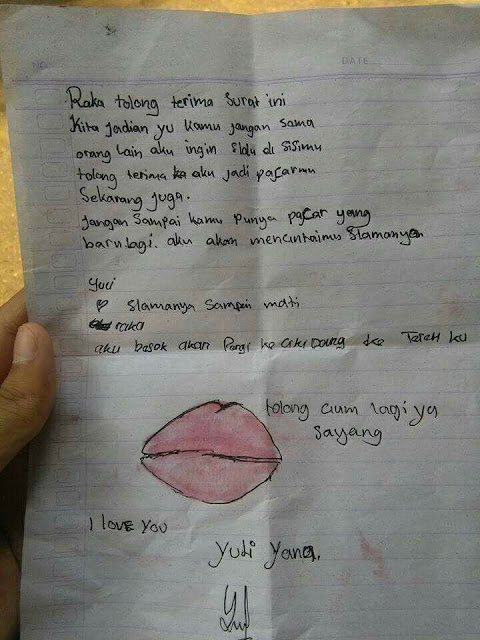 NO.
DATE
Raka tolong terima surat ini
Kita jadian yu kamu jangan sama
orang lain aku ingin slalu di sisimu
tolong terima aku jadi pacarmu
Sekarang juga.
jangan sampai kamu punya pacar yang
baru lagi. aku akan mencintaimu slamanyan
Yuli
♡ slamanya sampai mati
raka
aku besok akan Pergi ke ke Teteh ku
tolong cium lagi ya
sayang
I love you
Yuli yana.